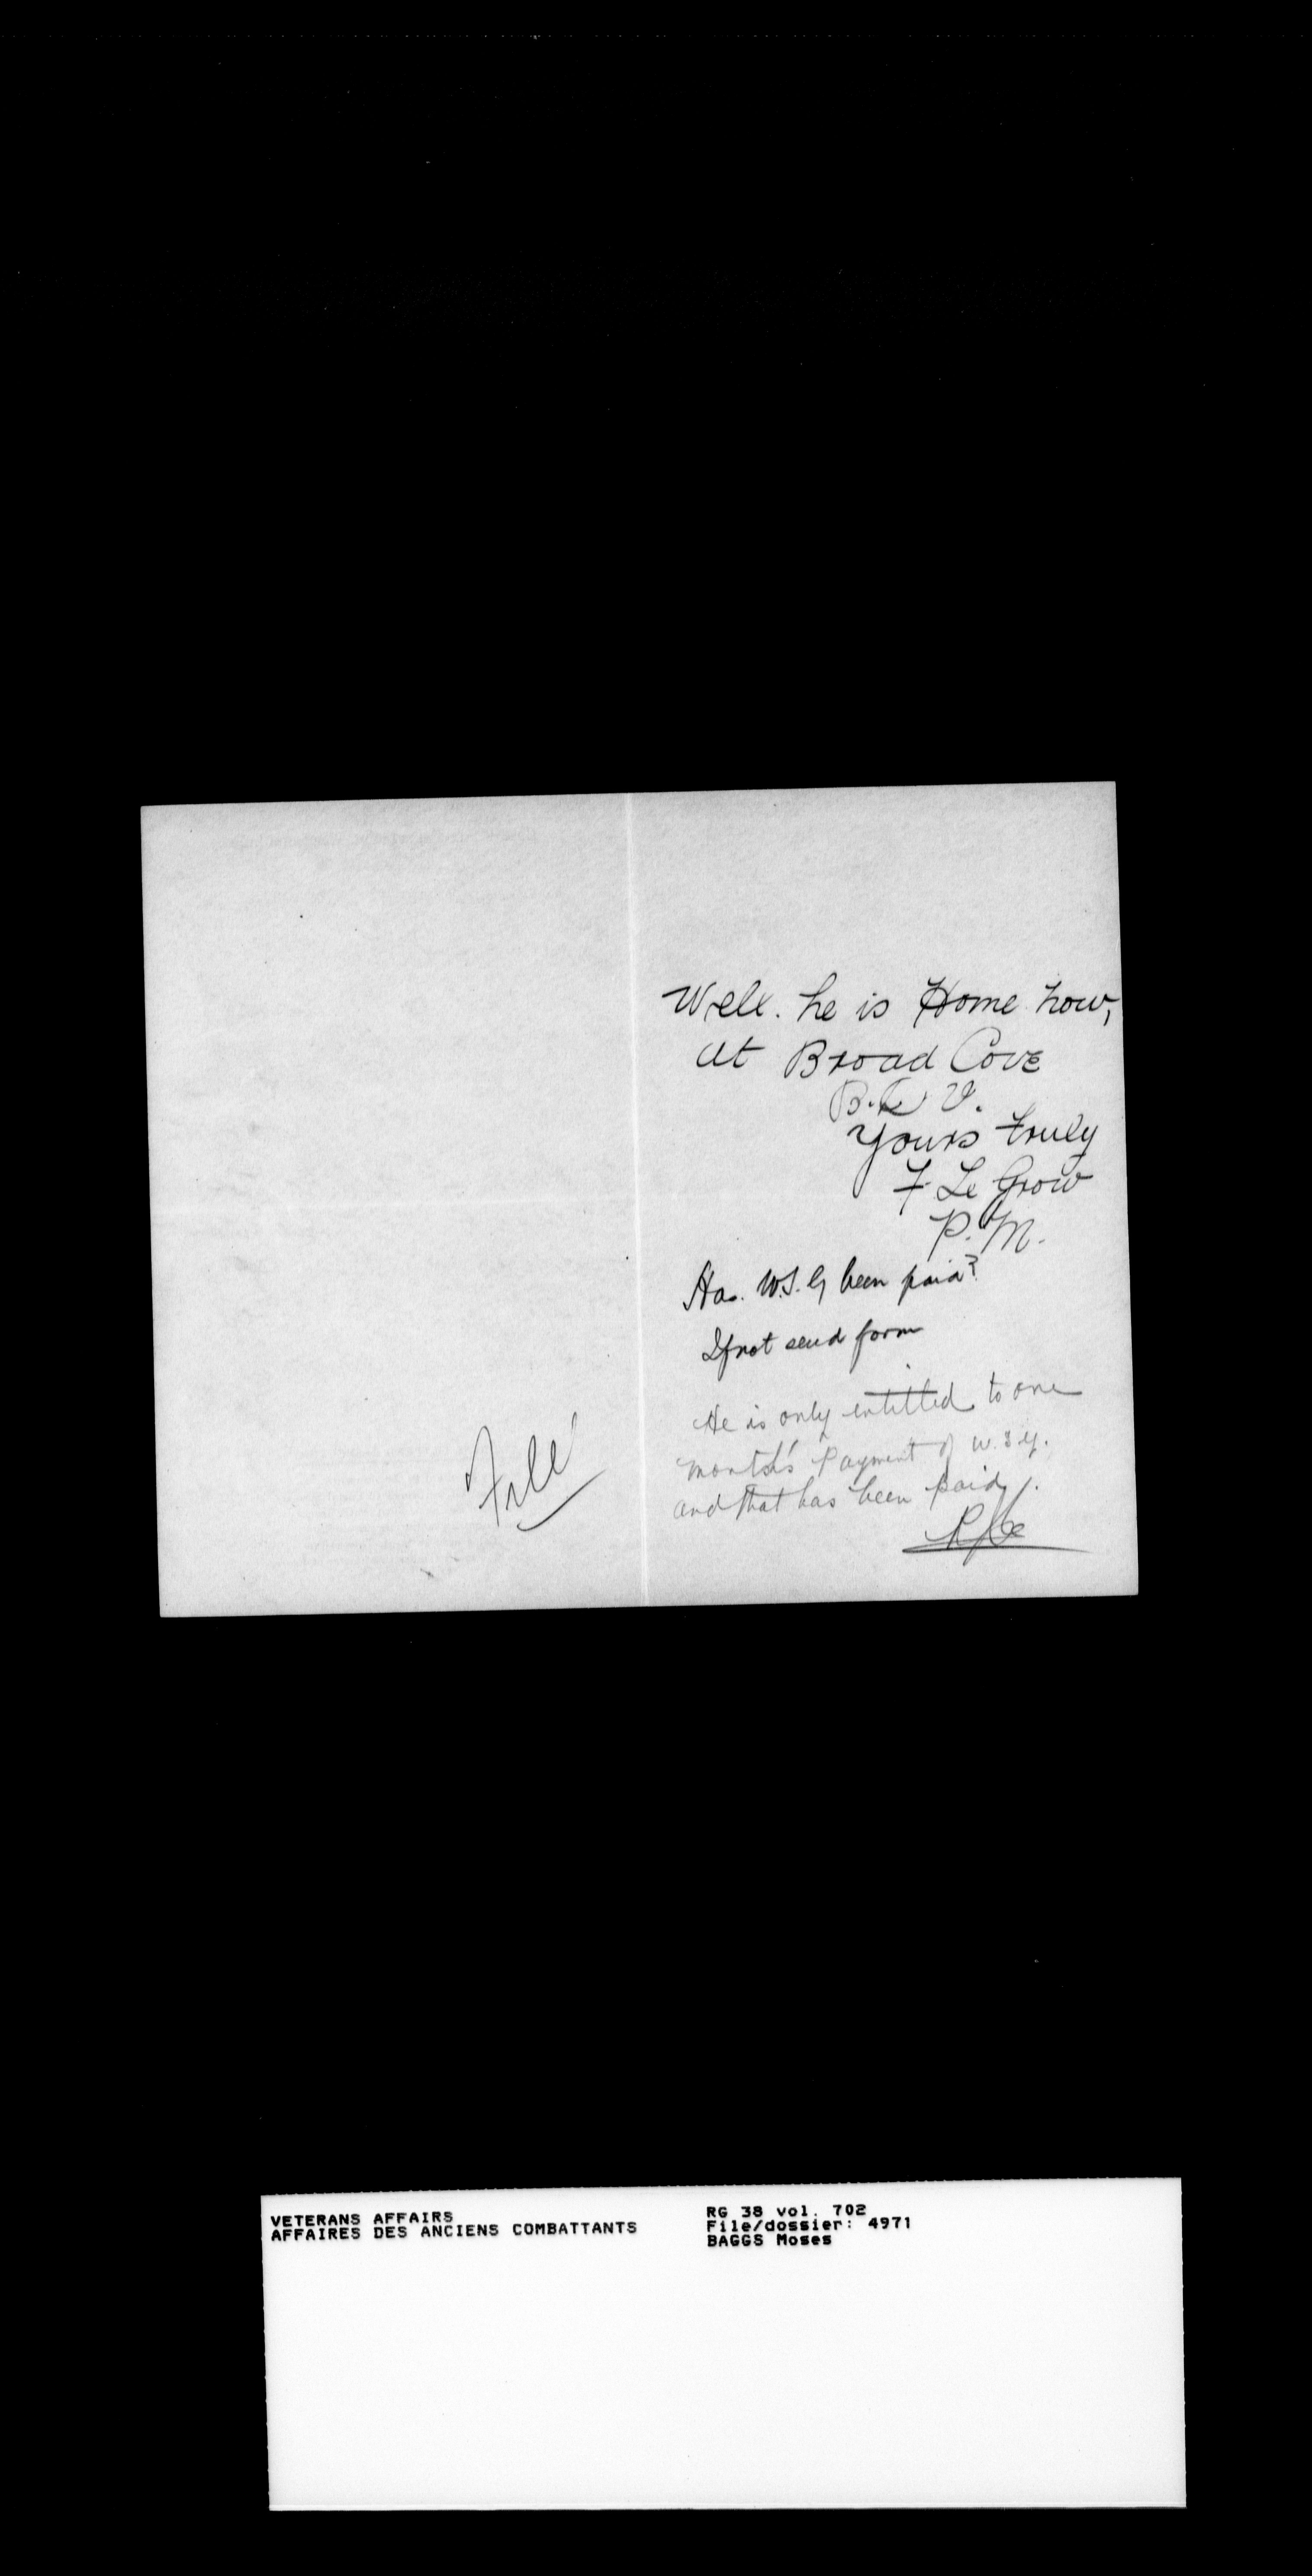 Well. he is Home now,
at Broad Cove
B. D. V.
Yours truly
F Le Grow
P. M.
Has. W.S.G been paid?
If not send form
He is only entitled to one
month's Payment of W.S.G.
and that has been paid.
File
VETERANS AFFAIRS
AFFAIRES DES ANCIENS COMBATTANTS
RG 38 vol. 702
File/dossier: 4971
BAGGS Moses